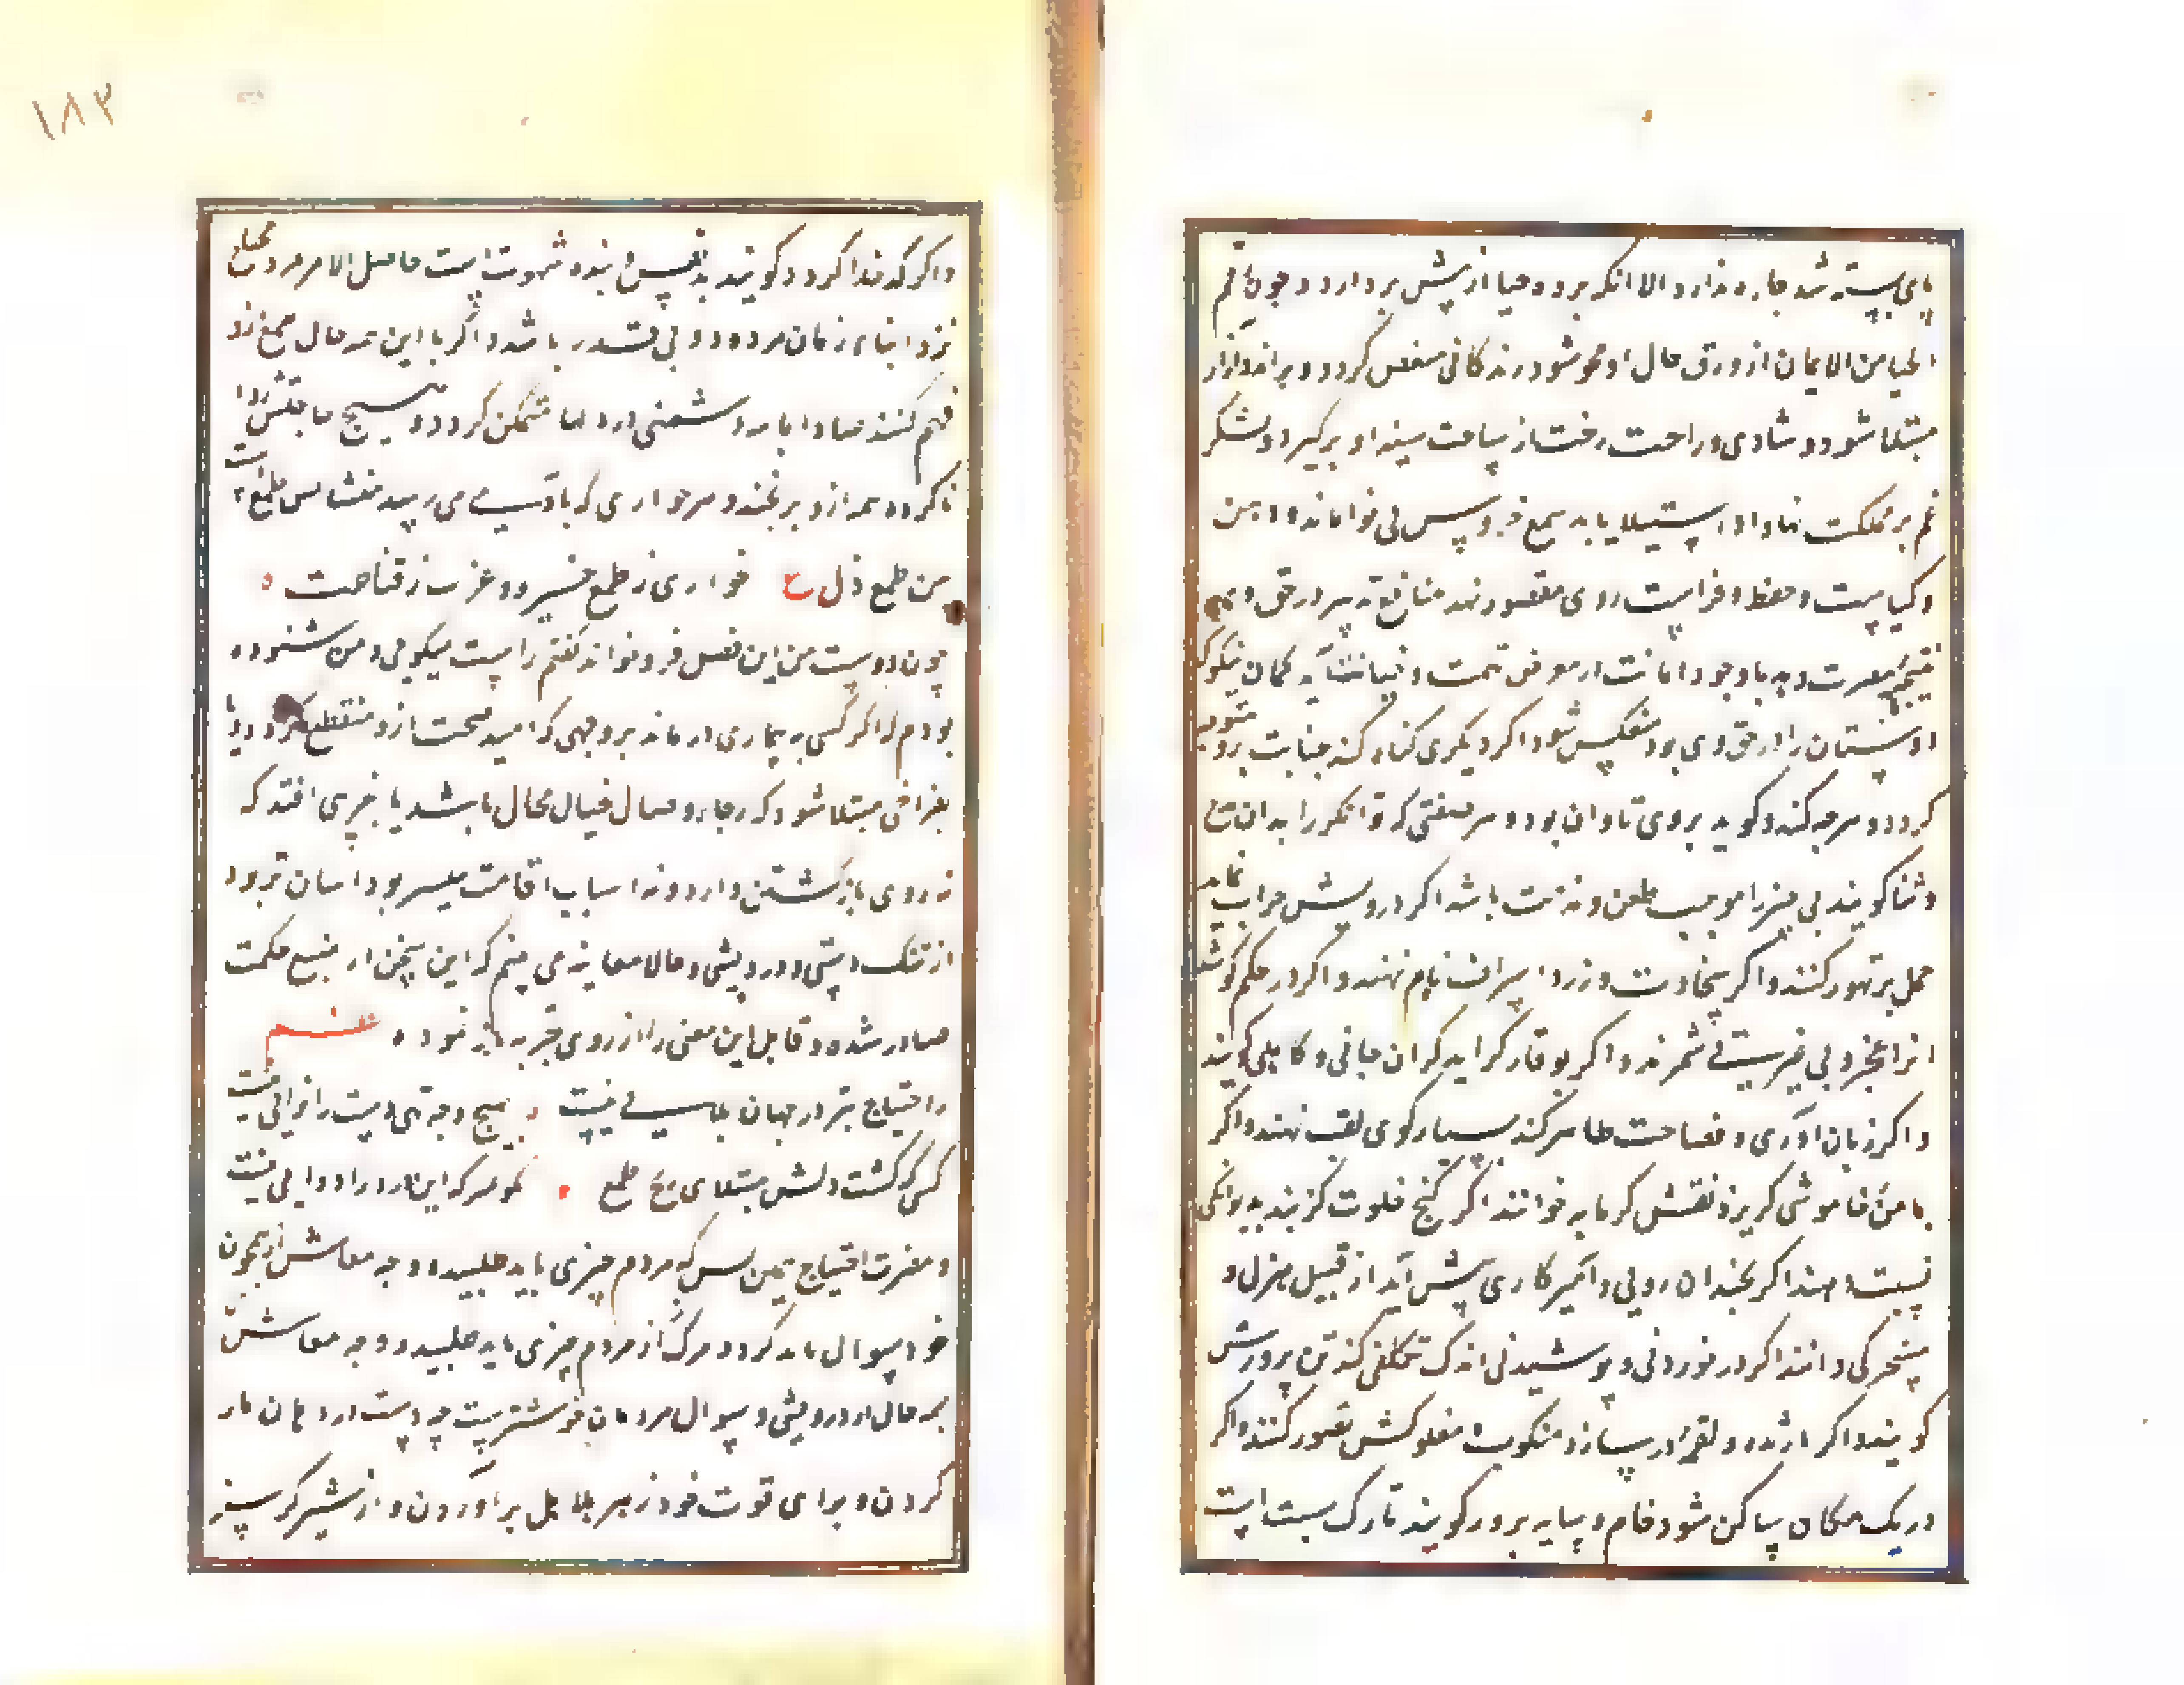 پای بسته شد چاره ندارد الا انکه پرده حیا از پیش بردارد و چون رقم
الحیا من الایمان از ورق حال او محو شود زندگانی منغص گردد و بایذا و ازار
مبتلا شود و شادی و راحت رخت از ساحت سینه او برگیرد و لشکر
غم بر مملکت نهاد او استیلا یابد شمع خرد بس بی نور ماند و ذهن
و کیاست و حفظ و فراست روی بقصور نهد منافع تدبیر در حق وی
نتیجه مضرت دهد با وجود امانت در معرض تهمت و خیانت آید گمان نیکو که
دوستان را در حق وی بود منعکس شود اگر دیگری گناه کند جنایت برو متوجه
گردد و هرچه کند و گوید بر وی تاوان بود و هر صفتی که توانگر را بدان مدح
و ثنا گویند بی چیز را موجب طعن و مذمت باشد اگر درویش جرات نماید
حمل بر تهور کنند و اگر سخاوت ورزد اسراف نام نهند و اگر در حلم کوشد
انرا عجز و بی غیرتی شمرند و اگر بوقار گراید گران جانی و کاهلی گویند
و اگر زبان اوری و فصاحت ظاهر کند بسیار گوی لقب نهند و اگر
بمامن خاموشی گریزد نقش گرمابه خوانند اگر کنج خلوت گزیند بدیوانگی
نسبت دهند اگر بخنده رویی و آمیزگاری پیش آید از قبیل هزل و
مسخرگی دانند اگر در خوردنی و پوشیدنی اندک تکلفی کند تن پرورش
گویند و اگر با ژنده و لقمه در سازد منکوب و مفلوکش تصور کنند و اگر
در یک مکان ساکن شود خام و سایه پرور گویند تارک سبت است
و اگر کدخدا گردد گویند بد نفس و بنده شهوت است حاصل الامر مرد محتاج
نزد ابنای زمان مردود و بی قدر باشد و اگر با این همه حال طمع نزد
فهم کنند عیاذا بالله دشمنی در دلها متمکن گردد و هیچ حاجتش روا
ناکرده همه ازو برنجند و هر خواری که بادمی می رسد منشاش طمع است
من طمع ذل ع خواری ز طمع خیزد و عزت ز قناعت
چون دوست من این فصل فرو خواند گفتم راست میگویی و من شنوده
بودم که اگر کسی به بیماری درماند بر وجهی که امید صحت ازو منقطع گردد یا
بفراقی مبتلا شود که رجاء وصال خیال محال باشد یا بغربتی افتد که
نه روی باز گشتن دارد و نه اسباب اقامت میسر بود اسان تر بود
از تنگ دستی و درویشی و حالا معاینه می بینم که این سخن از منبع حکمت
صادر شده و قابل این معنی را از روی تجربه باز نموده نظم
ز احتیاج بتر در جهان بلایی نیست هیچ وجه تهی دست را نوایی نیست
کسی که گشت دلش مبتلای رنج طمع بگو بمیر که این درد را دوایی نیست
و مضرت احتیاج همین بس که از مردم چیزی باید طلبید و وجه معاش از همچون
خود سوال باید کرد و مرگ از مردم چیزی باید طلبید و وجه معاش
بهر حال از درویشی و سوال مردمان خوشتر است چه دست در دهان مار
کردن و برای قوت خود زهر هلاهل براوردن و از شیر گرسنه
۱۸۳